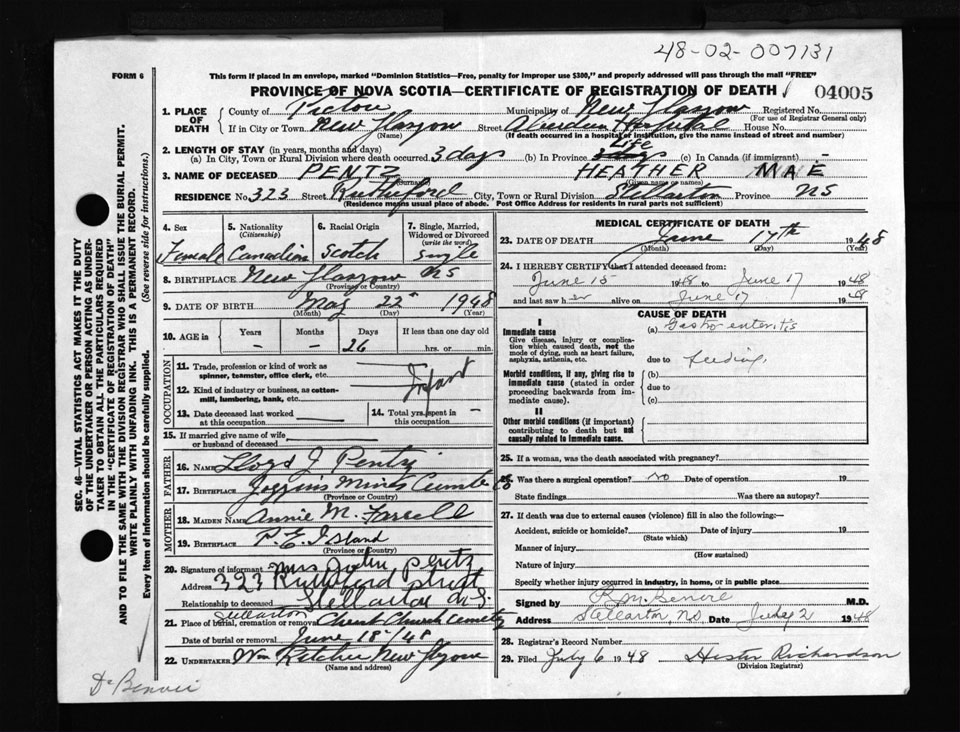 48-02-007131
FORM 6
This form if placed in an envelope, marked "Dominion Statistics—Free, penalty for improper use $300," and properly addressed will pass through the mail "FREE"
PROVINCE OF NOVA SCOTIA—CERTIFICATE OF REGISTRATION OF DEATH 04005
1. PLACE OF DEATH
County of Pictou Municipality of New Glasgow Registered No.
(For use of Registrar General only)
If in City or Town New Glasgow Street Aberdeen Hospital House No.
(Name) (If death occurred in a hospital or institution, give the name instead of street and number)
2. LENGTH OF STAY (in years, months and days)
(a) In City, Town or Rural Division where death occurred 3 days (b) In Province Life 3 days (c) In Canada (if immigrant) —
3. NAME OF DECEASED PENTZ HEATHER MAE
(Surname) (Given name or names)
RESIDENCE No. 323 Street Rutherford City, Town or Rural Division Stellarton Province NS
(Residence means usual place of abode. Post Office Address for residents in rural parts not sufficient)
4. Sex
Female
5. Nationality
(Citizenship)
Canadian
6. Racial Origin
Scotch
7. Single, Married, Widowed or Divorced
(write the word)
Single
8. BIRTHPLACE New Glasgow NS
(Province or Country)
9. DATE OF BIRTH May 22 1948
(Month) (Day) (Year)
10. AGE in Years Months Days If less than one day old
— — 26 hrs. or min.
OCCUPATION
11. Trade, profession or kind of work as spinner, teamster, office clerk, etc.
Infant
12. Kind of industry or business, as cotton-mill, lumbering, bank, etc.
13. Date deceased last worked at this occupation
14. Total yrs. spent in this occupation —
15. If married give name of wife or husband of deceased
FATHER
16. NAME Lloyd J Pentz
17. BIRTHPLACE Joggins Mines Cumb Co
(Province or Country)
MOTHER
18. MAIDEN NAME Annie M. Farrell
19. BIRTHPLACE P. E. Island
(Province or Country)
20. Signature of informant Mrs Pentz
Address 323 Rutherford Street
Relationship to deceased Stellarton N.S.
Stellarton
21. Place of burial, cremation or removal Christ Church Cemetery
Date of burial or removal June 18th/48
22. UNDERTAKER Wm New Glasgow
(Name and address)
MEDICAL CERTIFICATE OF DEATH
23. DATE OF DEATH June 17th 1948
(Month) (Day) (Year)
24. I HEREBY CERTIFY that I attended deceased from:
June 15 1948 to June 17 1948
and last saw her alive on June 17 1948
CAUSE OF DEATH
I
Immediate cause
Give disease, injury or complication which caused death, not the mode of dying, such as heart failure, asphyxia, asthenia, etc.
(a) Gastro enteritis
due to feeding
Morbid conditions, if any, giving rise to immediate cause (stated in order proceeding backwards from immediate cause).
(b)
due to
(c)
II
Other morbid conditions (if important) contributing to death but not causally related to immediate cause.
25. If a woman, was the death associated with pregnancy?
26. Was there a surgical operation? No Date of operation 19
State findings Was there an autopsy?
27. If death was due to external causes (violence) fill in also the following:—
Accident, suicide or homicide? Date of injury 19
(State which)
Manner of injury
(How sustained)
Nature of injury
Specify whether injury occurred in industry, in home, or in public place
Signed by M.D.
Address Stellarton NS Date July 2 1948
28. Registrar's Record Number
29. Filed July 6 1948 Hester Richardson
(Division Registrar)
SEC. 46—VITAL STATISTICS ACT MAKES IT THE DUTY OF THE UNDERTAKER OR PERSON ACTING AS UNDERTAKER TO OBTAIN ALL THE PARTICULARS REQUIRED IN THE "CERTIFICATE OF REGISTRATION OF DEATH" AND TO FILE THE SAME WITH THE DIVISION REGISTRAR WHO SHALL ISSUE THE BURIAL PERMIT.
WRITE PLAINLY WITH UNFADING INK. THIS IS A PERMANENT RECORD.
Every item of information should be carefully supplied. (See reverse side for instructions.)